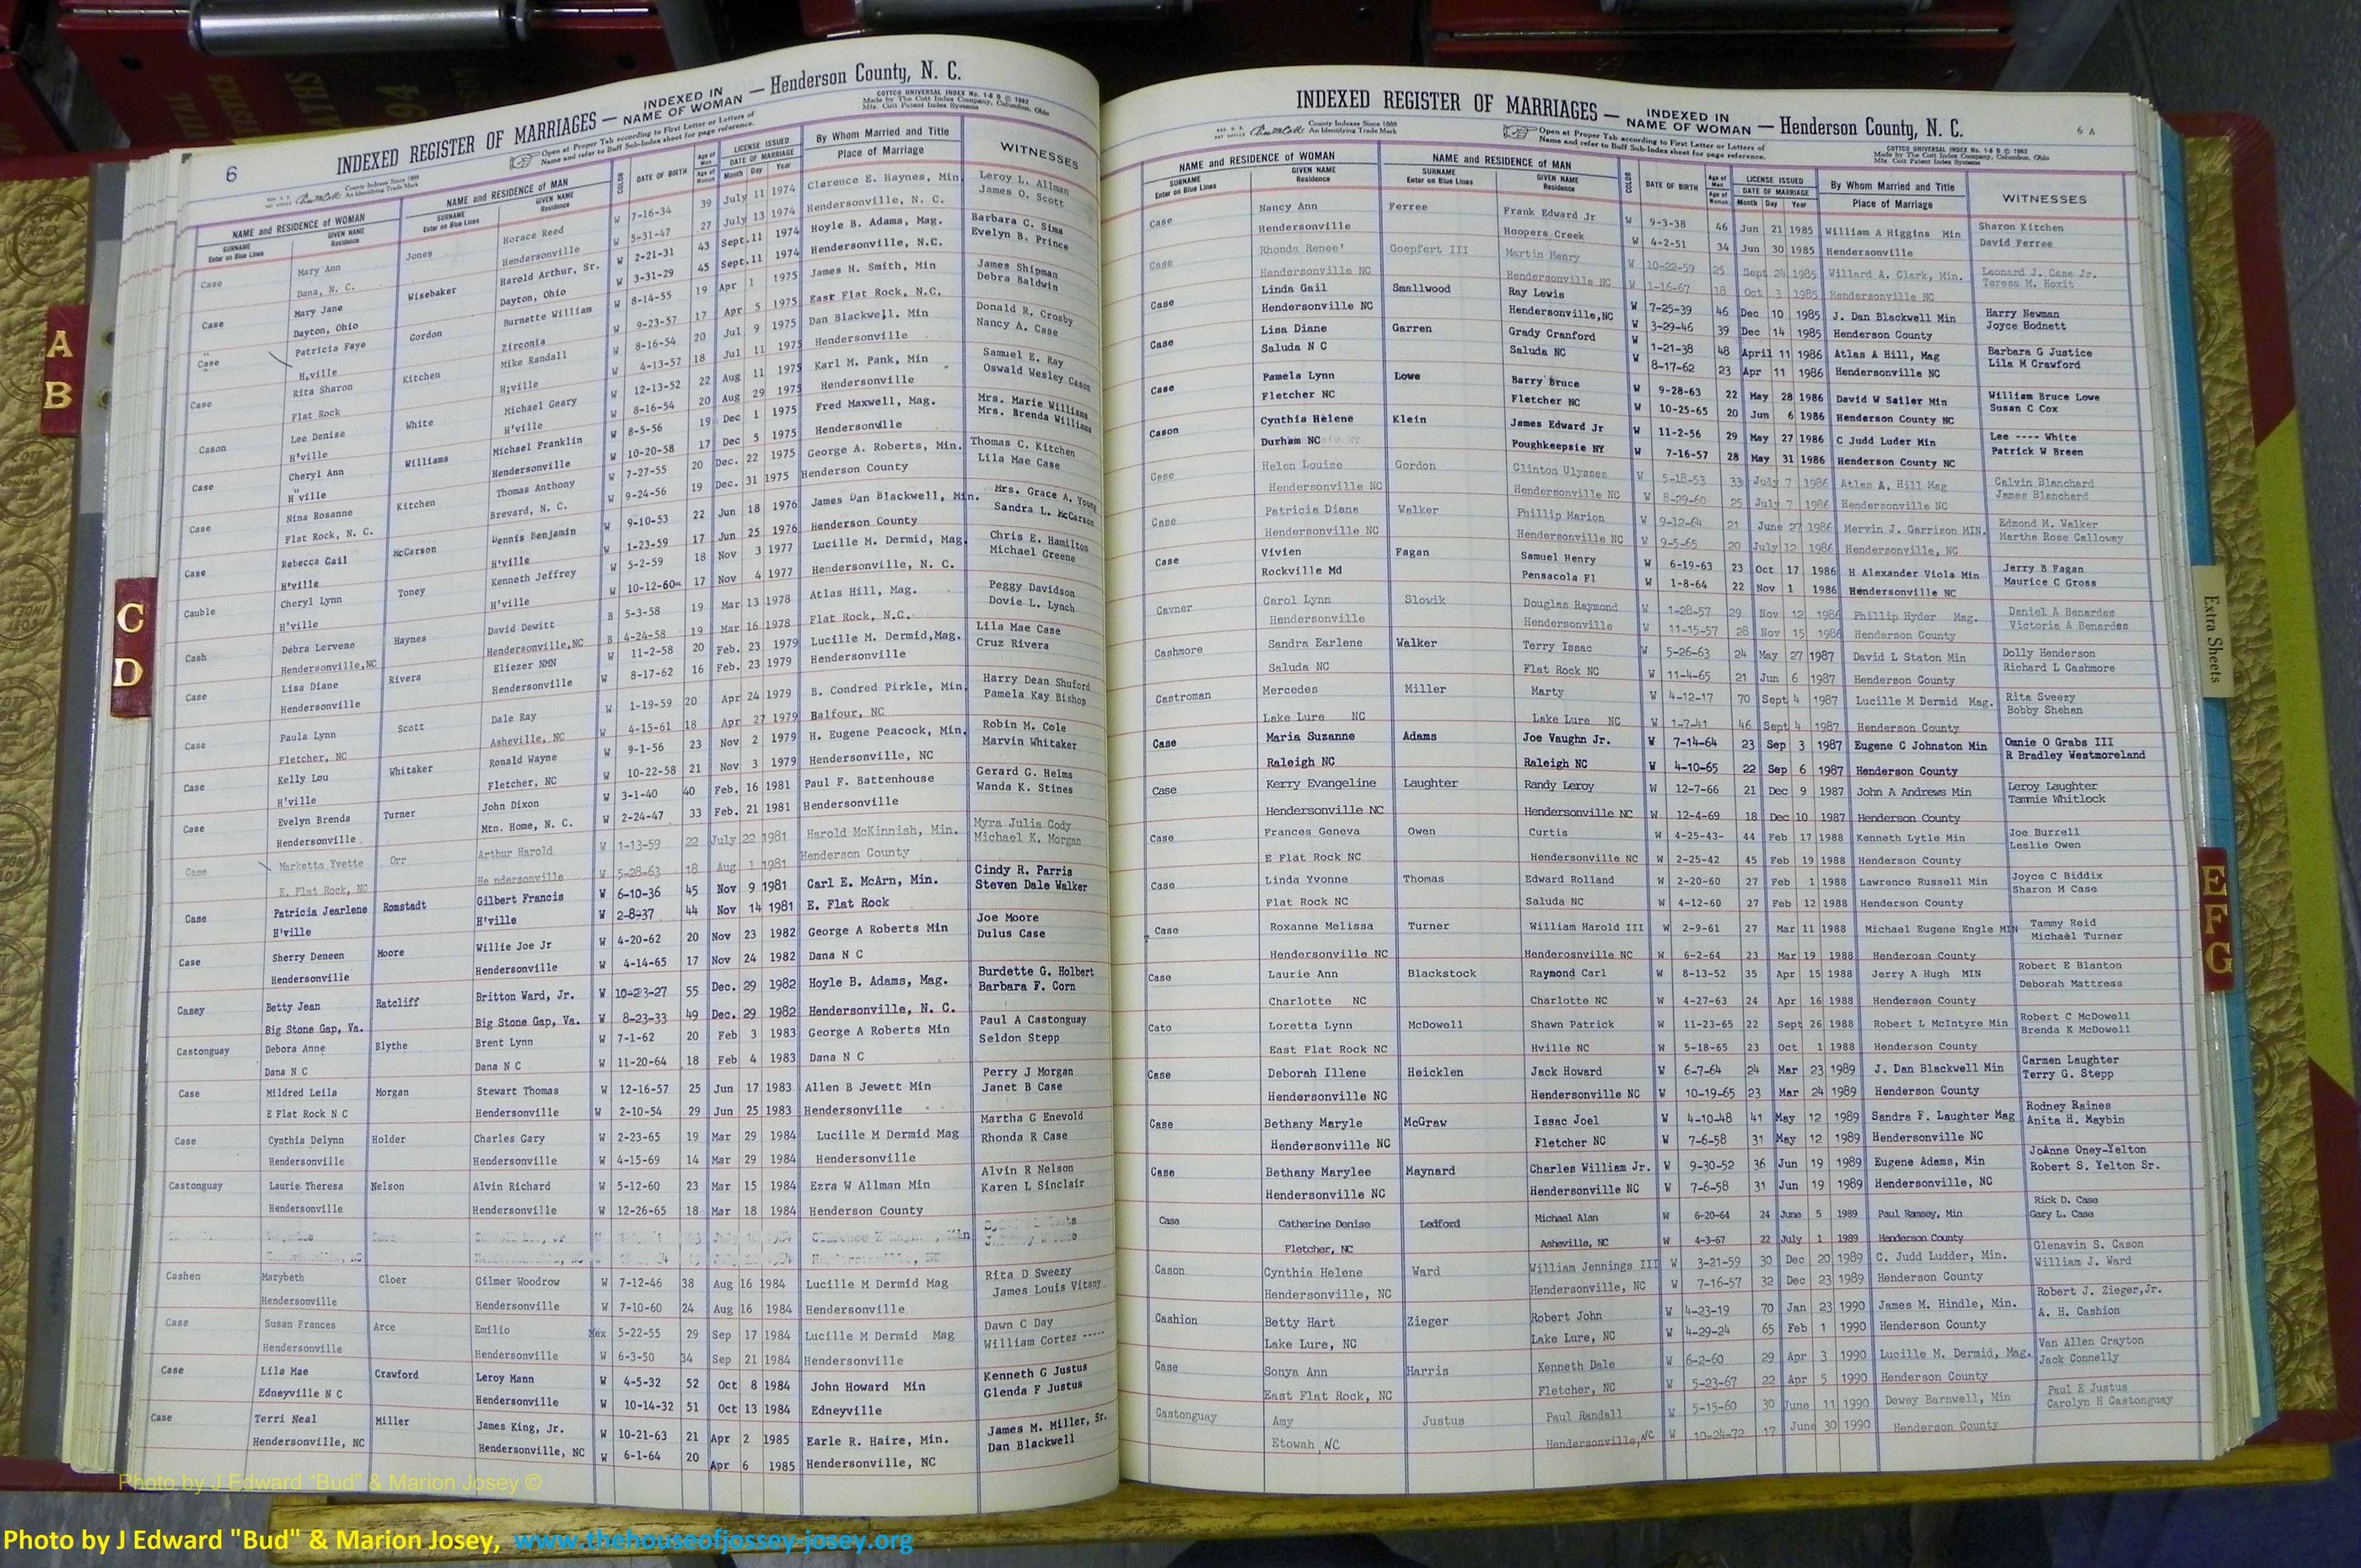 6
INDEXED REGISTER OF MARRIAGES — INDEXED IN NAME OF WOMAN — Henderson County, N. C.
COTTCO UNIVERSAL INDEX No. 1-6 B © 1962
Made by The Cott Index Company, Columbus, Ohio
Mfg. Cott Patent Index Systems
County Indexes Since 1888
An Identifying Trade Mark
Open at Proper Tab according to First Letter or Letters of
Name and refer to Buff Sub-Index sheet for page reference.
NAME and RESIDENCE of WOMAN NAME and RESIDENCE of MAN COLOR DATE OF BIRTH Age of Man Age of Woman LICENSE ISSUED DATE OF MARRIAGE By Whom Married and Title WITNESSES
SURNAME Enter on Blue Lines GIVEN NAME Residence SURNAME Enter on Blue Lines GIVEN NAME Residence Month Day Year Place of Marriage
Case Mary Ann Jones Horace Reed W 7-16-34 39 July 11 1974 Clarence E. Haynes, Min Leroy L. Allman
Dana, N. C. Hendersonville W 5-31-47 27 July 13 1974 Hendersonville, N. C. James O. Scott
Case Mary Jane Wisebaker Harold Arthur, Sr. W 2-21-31 43 Sept. 11 1974 Hoyle B. Adams, Mag. Barbara C. Sims
Dayton, Ohio Dayton, Ohio W 3-31-29 45 Sept. 11 1974 Hendersonville, N.C. Evelyn B. Prince
Case Patricia Faye Gordon Burnette William W 8-14-55 19 Apr 1 1975 James H. Smith, Min James Shipman
H,ville Zirconia W 9-23-57 17 Apr 5 1975 East Flat Rock, N.C. Debra Baldwin
Case Rita Sharon Kitchen Mike Randall W 8-16-54 20 Jul 9 1975 Dan Blackwell. Min Donald R. Crosby
Flat Rock H;ville W 4-13-57 18 Jul 11 1975 Hendersonville Nancy A. Case
Cason Lee Denise White Michael Geary W 12-13-52 22 Aug 11 1975 Karl M. Pank, Min Samuel E. Ray
H'ville H'ville W 8-16-54 20 Aug 29 1975 Hendersonville Oswald Wesley Cason
Case Cheryl Ann Williams Michael Franklin W 8-5-56 19 Dec 1 1975 Fred Maxwell, Mag. Mrs. Marie Williams
H'ville Hendersonville W 10-20-58 17 Dec 5 1975 Hendersonville Mrs. Brenda Williams
Case Nina Rosanne Kitchen Thomas Anthony W 7-27-55 20 Dec. 22 1975 George A. Roberts, Min. Thomas C. Kitchen
Flat Rock, N. C. Brevard, N. C. W 9-24-56 19 Dec. 31 1975 Henderson County Lila Mae Case
Case Rebecca Gail McCarson Dennis Benjamin W 9-10-53 22 Jun 18 1976 James Dan Blackwell, Min. Mrs. Grace A. Young
H'ville H'ville W 1-23-59 17 Jun 25 1976 Henderson County Sandra L. McCarson
Cauble Cheryl Lynn Toney Kenneth Jeffrey W 5-2-59 18 Nov 3 1977 Lucille M. Dermid, Mag. Chris E. Hamilton
H'ville H'ville W 10-12-60 17 Nov 4 1977 Hendersonville, N. C. Michael Greene
Cash Debra Lervene Haynes David Dewitt B 5-3-58 19 Mar 13 1978 Atlas Hill, Mag. Peggy Davidson
Hendersonville,NC Hendersonville,NC B 4-24-58 19 Mar 16 1978 Flat Rock, N.C. Dovie L. Lynch
Case Lisa Diane Rivera Eliezer NMN W 11-2-58 20 Feb. 23 1979 Lucille M. Dermid,Mag. Lila Mae Case
Hendersonville Hendersonville W 8-17-62 16 Feb. 23 1979 Hendersonville Cruz Rivera
Case Paula Lynn Scott Dale Ray W 1-19-59 20 Apr 24 1979 B. Condred Pirkle, Min. Harry Dean Shuford
Fletcher, NC Asheville, NC W 4-15-61 18 Apr 27 1979 Balfour, NC Pamela Kay Bishop
Case Kelly Lou Whitaker Ronald Wayne W 9-1-56 23 Nov 2 1979 H. Eugene Peacock, Min. Robin M. Cole
H'ville Fletcher, NC W 10-22-58 21 Nov 3 1979 Hendersonville, NC Marvin Whitaker
Case Evelyn Brenda Turner John Dixon W 3-1-40 40 Feb. 16 1981 Paul F. Battenhouse Gerard G. Helms
Hendersonville Mtn. Home, N. C. W 2-24-47 33 Feb. 21 1981 Hendersonville Wanda K. Stines
Case Marketta Yvette Orr Arthur Harold W 1-13-59 22 July 22 1981 Harold McKinnish, Min. Myra Julia Cody
E. Flat Rock, NC Hendersonville W 5-28-63 18 Aug 1 1981 Henderson County Michael K. Morgan
Case Patricia Jearlene Romstadt Gilbert Francis W 6-10-36 45 Nov 9 1981 Carl E. McArn, Min. Cindy R. Parris
H'ville H'ville W 2-8-37 44 Nov 14 1981 E. Flat Rock Steven Dale Walker
Case Sherry Deneen Moore Willie Joe Jr W 4-20-62 20 Nov 23 1982 George A Roberts Min Joe Moore
Hendersonville Hendersonville W 4-14-65 17 Nov 24 1982 Dana N C Dulus Case
Casey Betty Jean Ratcliff Britton Ward, Jr. W 10-23-27 55 Dec. 29 1982 Hoyle B. Adams, Mag. Burdette G. Holbert
Big Stone Gap, Va. Big Stone Gap, Va. W 8-23-33 49 Dec. 29 1982 Hendersonville, N. C. Barbara F. Corn
Castonguay Debora Anne Blythe Brent Lynn W 7-1-62 20 Feb 3 1983 George A Roberts Min Paul A Castonguay
Dana N C Dana N C W 11-20-64 18 Feb 4 1983 Dana N C Seldon Stepp
Case Mildred Leila Morgan Stewart Thomas W 12-16-57 25 Jun 17 1983 Allen B Jewett Min Perry J Morgan
E Flat Rock N C Hendersonville W 2-10-54 29 Jun 25 1983 Hendersonville Janet B Case
Case Cynthia Delynn Holder Charles Gary W 2-23-65 19 Mar 29 1984 Lucille M Dermid Mag Martha G Enevold
Hendersonville Hendersonville W 4-15-69 14 Mar 29 1984 Hendersonville Rhonda R Case
Castonguay Laurie Theresa Nelson Alvin Richard W 5-12-60 23 Mar 15 1984 Ezra W Allman Min Alvin R Nelson
Hendersonville Hendersonville W 12-26-65 18 Mar 18 1984 Henderson County Karen L Sinclair
Cashen Marybeth Cloer Gilmer Woodrow W 7-12-46 38 Aug 16 1984 Lucille M Dermid Mag Rita D Sweezy
Hendersonville Hendersonville W 7-10-60 24 Aug 16 1984 Hendersonville James Louis Vitany
Case Susan Frances Arce Emilio Mex 5-22-55 29 Sep 17 1984 Lucille M Dermid Mag Dawn C Day
Hendersonville Hendersonville W 6-3-50 34 Sep 21 1984 Hendersonville William Cortez -----
Case Lila Mae Crawford Leroy Mann W 4-5-32 52 Oct 8 1984 John Howard Min Kenneth G Justus
Edneyville N C Hendersonville W 10-14-32 51 Oct 13 1984 Edneyville Glenda F Justus
Case Terri Neal Miller James King, Jr. W 10-21-63 21 Apr 2 1985 Earle R. Haire, Min. James M. Miller, Sr.
Hendersonville, NC Hendersonville, NC W 6-1-64 20 Apr 6 1985 Hendersonville, NC Dan Blackwell
INDEXED REGISTER OF MARRIAGES — INDEXED IN NAME OF WOMAN — Henderson County, N. C.
6 A
County Indexes Since 1888
An Identifying Trade Mark
Open at Proper Tab according to First Letter or Letters of
Name and refer to Buff Sub-Index sheet for page reference.
COTTCO UNIVERSAL INDEX No. 1-6 B © 1962
Made by The Cott Index Company, Columbus, Ohio
Mfg. Cott Patent Index Systems
NAME and RESIDENCE of WOMAN NAME and RESIDENCE of MAN COLOR DATE OF BIRTH Age of Man Age of Woman LICENSE ISSUED DATE OF MARRIAGE By Whom Married and Title WITNESSES
SURNAME Enter on Blue Lines GIVEN NAME Residence SURNAME Enter on Blue Lines GIVEN NAME Residence Month Day Year Place of Marriage
Case Nancy Ann Ferree Frank Edward Jr W 9-3-38 46 Jun 21 1985 William A Higgins Min Sharon Kitchen
Hendersonville Hoopers Creek W 4-2-51 34 Jun 30 1985 Hendersonville David Ferree
Case Rhonda Renee' Goepfert III Martin Henry W 10-22-59 25 Sept 24 1985 Willard A. Clark, Min. Leonard J. Case Jr.
Hendersonville NC Hendersonville NC W 1-16-67 18 Oct 3 1985 Hendersonville NC Teresa M. Hoxit
Case Linda Gail Smallwood Ray Lewis W 7-25-39 46 Dec 10 1985 J. Dan Blackwell Min Harry Newman
Hendersonville NC Hendersonville,NC W 3-29-46 39 Dec 14 1985 Henderson County Joyce Hodnett
Case Lisa Diane Garren Grady Cranford W 1-21-38 48 April 11 1986 Atlas A Hill, Mag Barbara G Justice
Saluda N C Saluda NC W 8-17-62 23 Apr 11 1986 Hendersonville NC Lila M Crawford
Case Pamela Lynn Lowe Barry Bruce W 9-28-63 22 May 28 1986 David W Sailer Min William Bruce Lowe
Fletcher NC Fletcher NC W 10-25-65 20 Jun 6 1986 Henderson County NC Susan C Cox
Cason Cynthia Helene Klein James Edward Jr W 11-2-56 29 May 27 1986 C Judd Luder Min Lee ---- White
Durham NC Poughkeepsie NY W 7-16-57 28 May 31 1986 Henderson County NC Patrick W Breen
Case Helen Louise Gordon Clinton Ulysses W 5-18-53 33 July 7 1986 Atlas A. Hill Mag Calvin Blanchard
Hendersonville NC Hendersonville NC W 8-29-60 25 July 7 1986 Hendersonville NC James Blanchard
Case Patricia Diana Walker Phillip Marion W 9-12-64 21 June 27 1986 Mervin J. Garrison MIN. Edmond M. Walker
Hendersonville NC Hendersonville NC W 9-5-65 20 July 12 1986 Hendersonville, NC Martha Rose Calloway
Case Vivien Fagan Samuel Henry W 6-19-63 23 Oct 17 1986 H Alexander Viola Min Jerry B Fagan
Rockville Md Pensacola Fl W 1-8-64 22 Nov 1 1986 Hendersonville NC Maurice C Gross
Cavner Carol Lynn Slowik Douglas Raymond W 1-28-57 29 Nov 12 1986 Phillip Hyder Mag. Daniel A Benardes
Hendersonville Hendersonville W 11-15-57 28 Nov 15 1986 Henderson County Victoria A Benardes
Cashmore Sandra Earlene Walker Terry Issac W 5-26-63 24 May 27 1987 David L Staton Min Dolly Henderson
Saluda NC Flat Rock NC W 11-4-65 21 Jun 6 1987 Henderson County Richard L Cashmore
Castroman Mercedes Miller Marty W 4-12-17 70 Sept 4 1987 Lucille M Dermid Mag. Rita Sweezy
Lake Lure NC Lake Lure NC W 1-7-41 46 Sept 4 1987 Henderson County Bobby Shehan
Case Maria Suzanne Adams Joe Vaughn Jr. W 7-14-64 23 Sep 3 1987 Eugene C Johnston Min Omnie O Grabs III
Raleigh NC Raleigh NC W 4-10-65 22 Sep 6 1987 Henderson County R Bradley Westmoreland
Case Kerry Evangeline Laughter Randy Leroy W 12-7-66 21 Dec 9 1987 John A Andrews Min Leroy Laughter
Hendersonville NC Hendersonville NC W 12-4-69 18 Dec 10 1987 Henderson County Tammie Whitlock
Case Frances Geneva Owen Curtis W 4-25-43- 44 Feb 17 1988 Kenneth Lytle Min Joe Burrell
E Flat Rock NC Hendersonville NC W 2-25-42 45 Feb 19 1988 Henderson County Leslie Owen
Case Linda Yvonne Thomas Edward Rolland W 2-20-60 27 Feb 1 1988 Lawrence Russell Min Joyce C Biddix
Flat Rock NC Saluda NC W 4-12-60 27 Feb 12 1988 Henderson County Sharon M Case
Case Roxanne Melissa Turner William Harold III W 2-9-61 27 Mar 11 1988 Michael Eugene Engle MIN Tammy Reid
Hendersonville NC Henderosnville NC W 6-2-64 23 Mar 19 1988 Henderosn County Michael Turner
Case Laurie Ann Blackstock Raymond Carl W 8-13-52 35 Apr 15 1988 Jerry A Hugh MIN Robert E Blanton
Charlotte NC Charlotte NC W 4-27-63 24 Apr 16 1988 Henderson County Deborah Mattress
Cato Loretta Lynn McDowell Shawn Patrick W 11-23-65 22 Sept 26 1988 Robert L McIntyre Min Robert C McDowell
East Flat Rock NC Hville NC W 5-18-65 23 Oct 1 1988 Henderson County Brenda K McDowell
Case Deborah Illene Heicklen Jack Howard W 6-7-64 24 Mar 23 1989 J. Dan Blackwell Min Carmen Laughter
Hendersonville NC Hendersonville NC W 10-19-65 23 Mar 24 1989 Henderson County Terry G. Stepp
Case Bethany Maryle McGraw Issac Joel W 4-10-48 41 May 12 1989 Sandra F. Laughter Mag Rodney Raines
Hendersonville NC Fletcher NC W 7-6-58 31 May 12 1989 Hendersonville NC Anita H. Maybin
Case Bethany Marylee Maynard Charles William Jr. W 9-30-52 36 Jun 19 1989 Eugene Adams, Min JoAnne Oney-Yelton
Hendersonville NC Hendersonville NC W 7-6-58 31 Jun 19 1989 Hendersonville, NC Robert S. Yelton Sr.
Case Catherine Denise Ledford Michael Alan W 6-20-64 24 June 5 1989 Paul Ramsey, Min Rick D. Case
Fletcher, NC Asheville, NC W 4-3-67 22 July 1 1989 Henderson County Gary L. Case
Cason Cynthia Helene Ward William Jennings III W 3-21-59 30 Dec 20 1989 C. Judd Ludder, Min. Glenavin S. Cason
Hendersonville, NC Hendersonville, NC W 7-16-57 32 Dec 23 1989 Henderson County William J. Ward
Cashion Betty Hart Zieger Robert John W 4-23-19 70 Jan 23 1990 James M. Hindle, Min. Robert J. Zieger,Jr.
Lake Lure, NC Lake Lure, NC W 4-29-24 65 Feb 1 1990 Henderson County A. H. Cashion
Case Sonya Ann Harris Kenneth Dale W 6-2-60 29 Apr 3 1990 Lucille M. Dermid, Mag. Van Allen Crayton
East Flat Rock, NC Fletcher, NC W 5-23-67 22 Apr 5 1990 Henderson County Jack Connelly
Castonguay Amy Justus Paul Randall W 5-15-60 30 June 11 1990 Dewey Barnwell, Min Paul E Justus
Etowah, NC Hendersonville, NC W 10-24-72 17 June 30 1990 Henderson County Carolyn H Castonguay
A
B
C
D
Extra Sheets
E
F
G
Photo by J Edward "Bud" & Marion Josey ©
Photo by J Edward "Bud" & Marion Josey, www.thehouseofjossey-josey.org